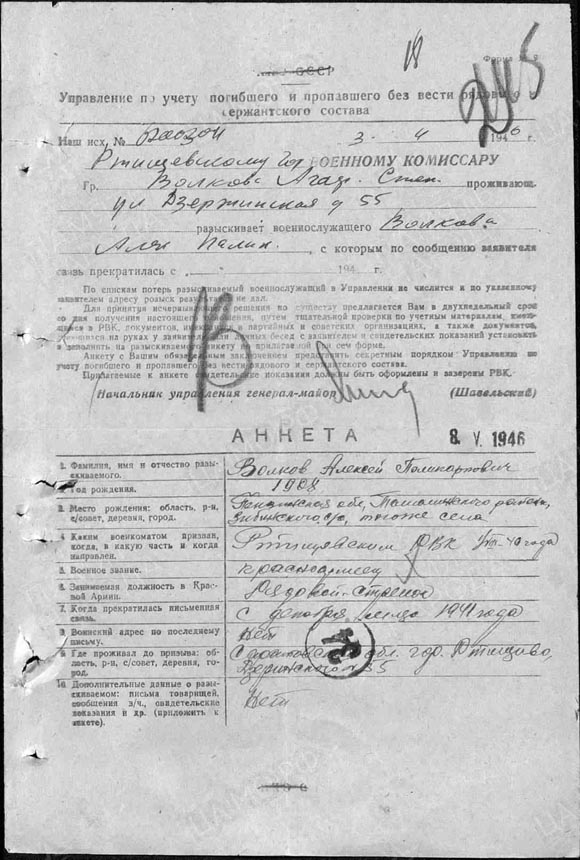 18
245
Форма № 2
СССР
Управление по учету погибшего и пропавшего без вести рядового и
сержантского состава
Наш исх. №
3 4 1946 г.
Ртищевскому Гор ВОЕННОМУ КОМИССАРУ
Гр. Волкова Агаф. Степ. проживающ.
ул Дзержинская д 55
разыскивает военнослужащего Волкова
Алек с которым по сообщению заявителя
связь прекратилась с 194 г.
По спискам потерь разыскиваемый военнослужащий в Управлении не числится и по указанному
заявителем адресу розыск результатов не дал.
Для принятия решения по существу предлагается Вам в двухнедельный срок
со дня получения настоящего путем тщательной проверки по учетным материалам,
в РВК, документов, в партийных и советских организациях, а также документов,
на руках у бесед с заявителем и свидетельских показаний установить
и заполнить на разыскиваемого анкету по прилагаемой при сем форме.
Анкету с Вашим обязательным заключением представить секретным порядком Управлению по
учету погибшего и пропавшего без вести рядового и сержантского состава.
Прилагаемые к анкете свидетельские показания должны быть оформлены и заверены РВК.
Начальник управления генерал-майор (Шавельский)
В
АНКЕТА
8 V 1946
1. Фамилия, имя и отчество разыскиваемого. Волков Алексей Поликарпович
2. Год рождения. 1908
3. Место рождения: область, р-н, с/совет, деревня, город. Пензенская обл, Тамалинского района,
с/с, того же села
4. Каким военкоматом призван, когда, в какую часть и когда направлен. Ртищевским РВК года
5. Военное звание. красноармеец
6. Занимаемая должность в Красной Армии. Рядовой-стрелок
7. Когда прекратилась письменная связь. с декабря месяца 1941 года
8. Воинский адрес по последнему письму. Нет
9. Где проживал до призыва: область, р-н, с/совет, деревня, город. Саратовской обл. гор. Ртищево,
Дзержинского 55
10. Дополнительные данные о разыскиваемом: письма товарищей, сообщения в/ч., свидетельские показания и др. (приложить к анкете). Нет